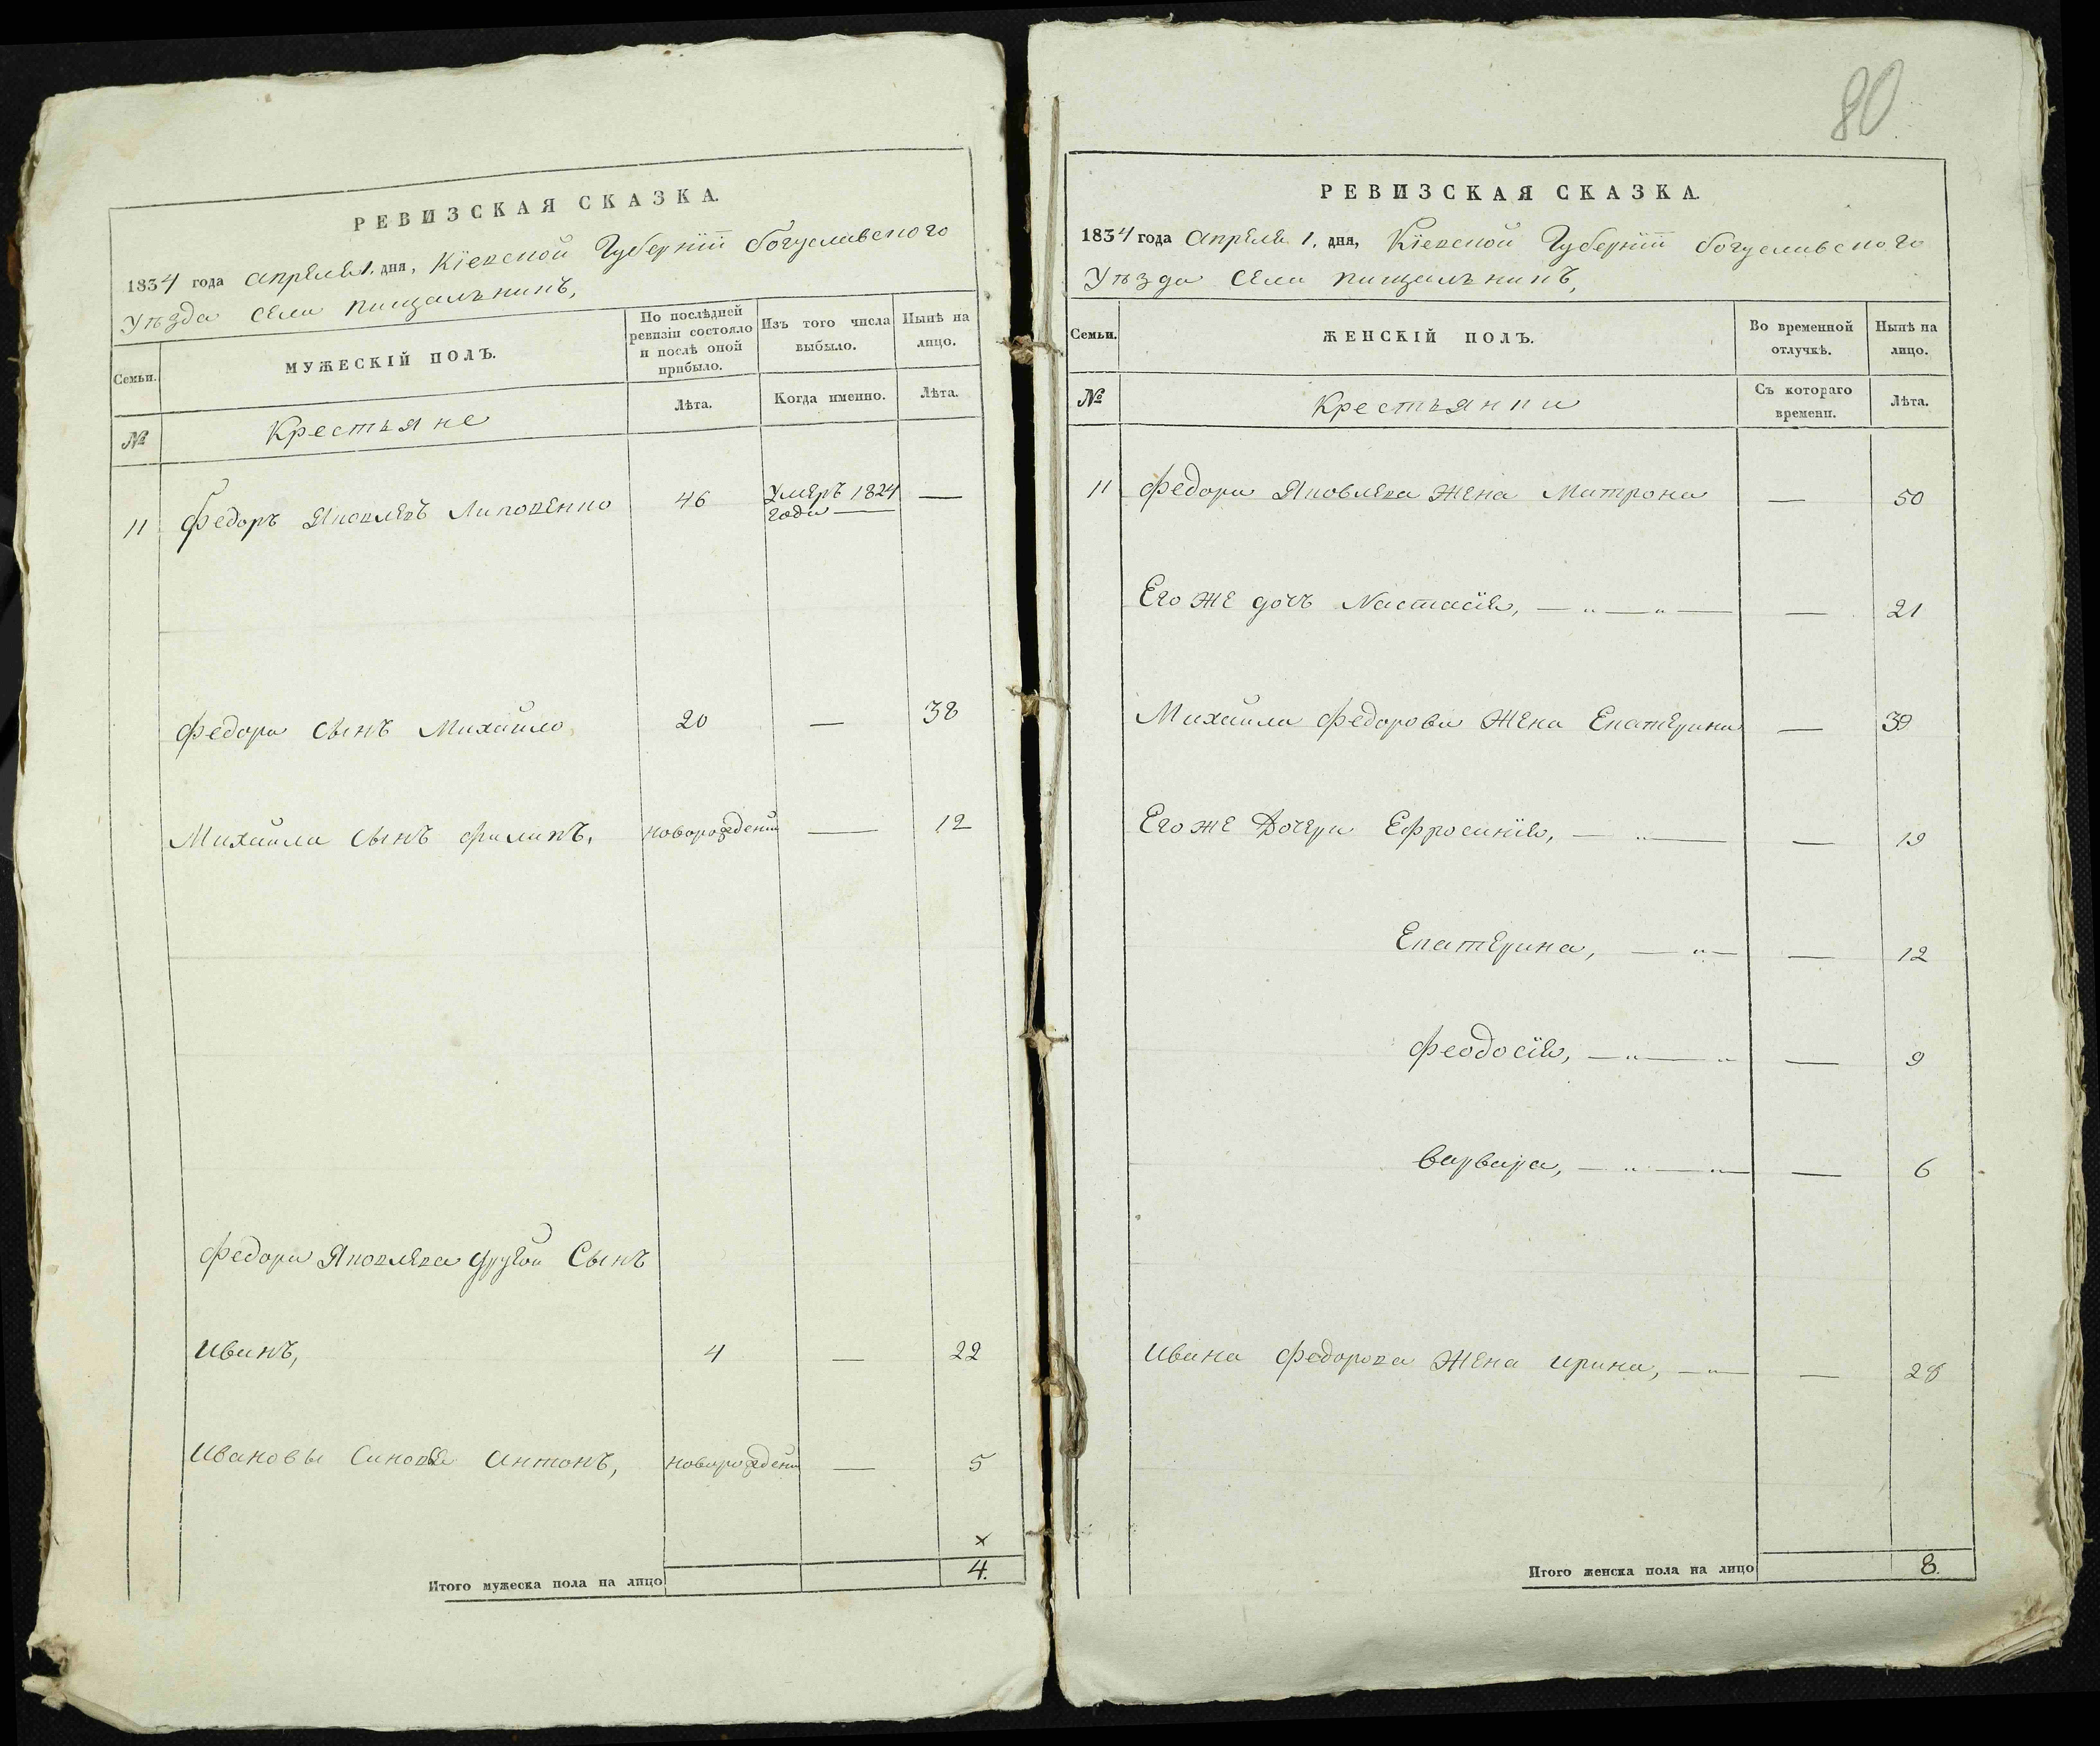 РЕВИЗСКАЯ СКАЗКА.
1834 года апреля 1. дня, Кіевской Губерніи богуславского
Уѣзда села пищальникъ,
Семьи.
МУЖЕСКІЙ ПОЛЪ.
По послѣдней ревизіи состояло и послѣ оной прибыло.
Изъ того числа выбыло.
Нынѣ на лицо.
№
Крестьяне
Лѣта.
Когда именно.
Лѣта.
11 Федоръ Яковлевъ Липовенко 46 умеръ 1824 —
года —
Федора сынъ Михайло 20 — 38
Михайла сынъ филипъ, новорожденъ — 12
Федора Яковлева другой Сынъ
Иванъ, 4 — 22
Ивановы Синовья антонъ, новорожденъ — 5
×
Итого мужеска пола на лицо 4.
80
РЕВИЗСКАЯ СКАЗКА.
1834 года апреля 1. дня, Кіевской Губерніи богуславского
Уѣзда села пищальникъ,
Семьи.
ЖЕНСКІЙ ПОЛЪ.
Во временной отлучкѣ.
Нынѣ на лицо.
№
Крестьянки
Съ котораго времени.
Лѣта.
11 Федора Яковлева жена Матрона — 50
Его же дочь Настасія, — „ — „ — — 21
Михайла Федорова жена Екатерина — 39
Его же Дочери Ефросинія, — „ — — 19
Екатерина, — „ — — 12
Феодосія, — „ — „ — 9
варвара, — „ — „ — — 6
Ивана Федорова жена ирина, — „ — — 28
Итого женска пола на лицо 8.